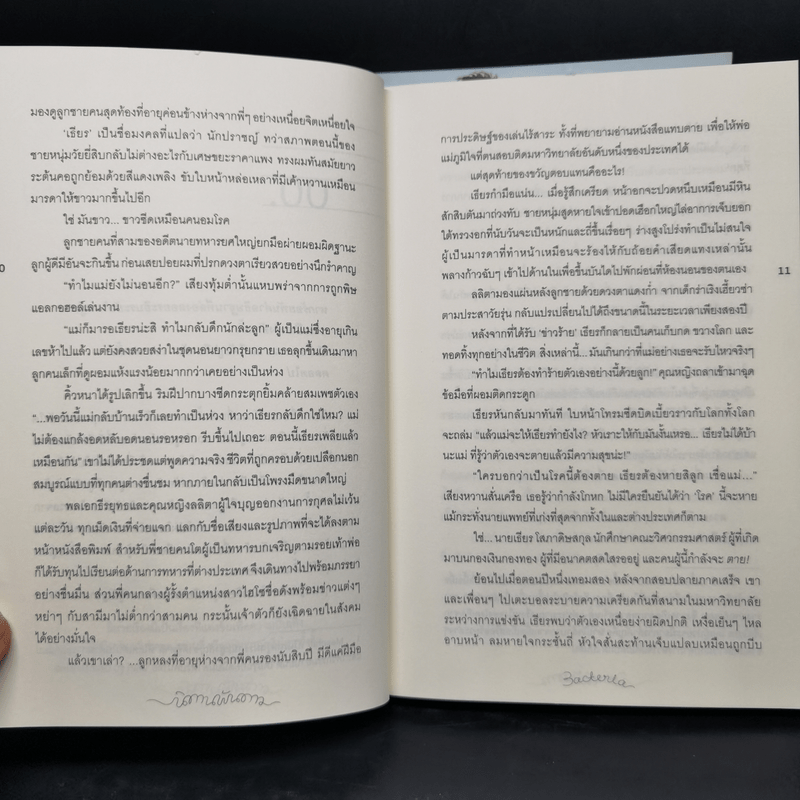 มองดูลูกชายคนสุดท้องที่อายุค่อนข้างห่างจากพี่ๆ อย่างเหนื่อยจิตเหนื่อยใจ
'เธียร' เป็นชื่อมงคลที่แปลว่า นักปราชญ์ ทว่าสภาพตอนนี้ของ
ชายหนุ่มวัยยี่สิบกลับไม่ต่างอะไรกับเศษขยะราคาแพง ทรงผมทันสมัยยาว
ระต้นคอถูกย้อมด้วยสีแดงเพลิง ขับใบหน้าหล่อเหลาที่มีเค้าหวานเหมือน
มารดาให้ขาวมากขึ้นไปอีก
ใช่ มันขาว... ขาวซีดเหมือนคนอมโรค
ลูกชายคนที่สามของอดีตนายทหารยศใหญ่ยกมือผ่ายผอมผิดฐานะ
ลูกผู้ดีมีอันจะกินขึ้น ก่อนเสยปอยผมที่ปรกดวงตาเรียวสวยอย่างนึกรำคาญ
"ทำไมแม่ยังไม่นอนอีก?" เสียงทุ้มต่ำนั้นแหบพร่าจากการถูกพิษ
แอลกอฮอล์เล่นงาน
"แม่ก็มารอเธียรน่ะสิ ทำไมกลับดึกนักล่ะลูก" ผู้เป็นแม่ซึ่งอายุเกิน
เลขห้าไปแล้ว แต่ยังคงสวยสง่าในชุดนอนยาวกรุยกราย เธอลุกขึ้นเดินมาหา
ลูกคนเล็กที่ดูผอมแห้งแรงน้อยมากกว่าเคยอย่างเป็นห่วง
คิ้วหนาได้รูปเลิกขึ้น ริมฝีปากบางซีดกระตุกยิ้มคล้ายสมเพชตัวเอง
"...พอวันนี้แม่กลับบ้านเร็วก็เลยทำเป็นห่วง หาว่าเธียรกลับดึกใช่ไหม? แม่
ไม่ต้องแกล้งอดหลับอดนอนรอหรอก รีบขึ้นไปเถอะ ตอนนี้เธียรเพลียแล้ว
เหมือนกัน" เขาไม่ได้ประชดแต่พูดความจริง ชีวิตที่ถูกครอบด้วยเปลือกนอก
สมบูรณ์แบบที่ทุกคนต่างชื่นชม หากภายในกลับเป็นโพรงมืดขนาดใหญ่
พลเอกธีรยุทธและคุณหญิงลลิตาผู้ใจบุญออกงานการกุศลไม่เว้น
แต่ละวัน ทุกเม็ดเงินที่จ่ายแจก แลกกับชื่อเสียงและรูปภาพที่จะได้ลงตาม
หน้าหนังสือพิมพ์ สำหรับพี่ชายคนโตผู้เป็นทหารบกเจริญตามรอยเท้าพ่อ
ก็ได้รับทุนไปเรียนต่อด้านการทหารที่ต่างประเทศ จึงเดินทางไปพร้อมภรรยา
อย่างชื่นมื่น ส่วนพี่คนกลางผู้รั้งตำแหน่งสาวไฮโซชื่อดังพร้อมข่าวแต่งๆ
หย่าๆ กับสามีมาไม่ต่ำกว่าสามคน กระนั้นเจ้าตัวก็ยังเฉิดฉายในสังคม
ได้อย่างมั่นใจ
แล้วเขาเล่า? ...ลูกหลงที่อายุห่างจากพี่คนรองนับสิบปี มีดีแค่ฝีมือ
0
นิทานพันดาว
การประดิษฐ์ของเล่นไร้สาระ ทั้งที่พยายามอ่านหนังสือแทบตาย เพื่อให้พ่อ
แม่ภูมิใจที่ตนสอบติดมหาวิทยาลัยอันดับหนึ่งของประเทศได้
แต่สุดท้ายของขวัญตอบแทนคืออะไร!
เธียรกำมือแน่น... เมื่อรู้สึกเครียด หน้าอกจะปวดหนึบเหมือนมีหิน
สักสิบตันมาถ่วงทับ ชายหนุ่มสูดหายใจเข้าปอดเฮือกใหญ่ไล่อาการเจ็บยอก
ใต้ทรวงอกที่นับวันจะเป็นหนักและถี่ขึ้นเรื่อยๆ ร่างสูงโปร่งทำเป็นไม่สนใจ
ผู้เป็นมารดาที่ทำหน้าเหมือนจะร้องไห้กับถ้อยคำเสียดแทงเหล่านั้น
พลางก้าวฉับๆ เข้าไปด้านในเพื่อขึ้นบันไดไปพักผ่อนที่ห้องนอนของตนเอง
ลลิตามองแผ่นหลังลูกชายด้วยดวงตาแดงก่ำ จากเด็กร่าเริงเฮี้ยวซ่า
ตามประสาวัยรุ่น กลับแปรเปลี่ยนไปได้ถึงขนาดนี้ในระยะเวลาเพียงสองปี
หลังจากที่ได้รับ 'ข่าวร้าย' เธียรก็กลายเป็นคนเก็บกด ขวางโลก และ
ทอดทิ้งทุกอย่างในชีวิต สิ่งเหล่านี้... มันเกินกว่าที่แม่อย่างเธอจะรับไหวจริงๆ
"ทำไมเธียรต้องทำร้ายตัวเองอย่างนี้ด้วยลูก!" คุณหญิงถลาเข้ามาฉุด
ข้อมือที่ผอมติดกระดูก
เธียรหันกลับมาทันที ใบหน้าโทรมซีดบิดเบี้ยวราวกับโลกทั้งโลก
จะถล่ม "แล้วแม่จะให้เธียรทำยังไง? หัวเราะให้กับมันงั้นเหรอ... เธียรไม่ได้บ้า
นะแม่ ที่รู้ว่าตัวเองจะตายแล้วมีความสุขน่ะ!"
"ใครบอกว่าเป็นโรคนี้ต้องตาย เธียรต้องหายสิลูก เชื่อแม่..."
เสียงหวานสั่นเครือ เธอรู้ว่ากำลังโกหก ไม่มีใครยืนยันได้ว่า 'โรค' นี้จะหาย
แม้กระทั่งนายแพทย์ที่เก่งที่สุดจากทั้งในและต่างประเทศก็ตาม
ใช่... นายเธียร โสภาดิษสกุล นักศึกษาคณะวิศวกรรมศาสตร์ ผู้ที่เกิด
มาบนกองเงินกองทอง ผู้ที่มีอนาคตสดใสรออยู่ และคนผู้นี้กำลังจะ ตาย!
ย้อนไปเมื่อตอนปีหนึ่งเทอมสอง หลังจากสอบปลายภาคเสร็จ เขา
และเพื่อนๆ ไปเตะบอลระบายความเครียดกันที่สนามในมหาวิทยาลัย
ระหว่างการแข่งขัน เธียรพบว่าตัวเองเหนื่อยง่ายผิดปกติ เหงื่อเย็นๆ ไหล
อาบหน้า ลมหายใจกระชั้นถี่ หัวใจสั่นสะท้านเจ็บแปลบเหมือนถูกบีบ
11
Bacteria